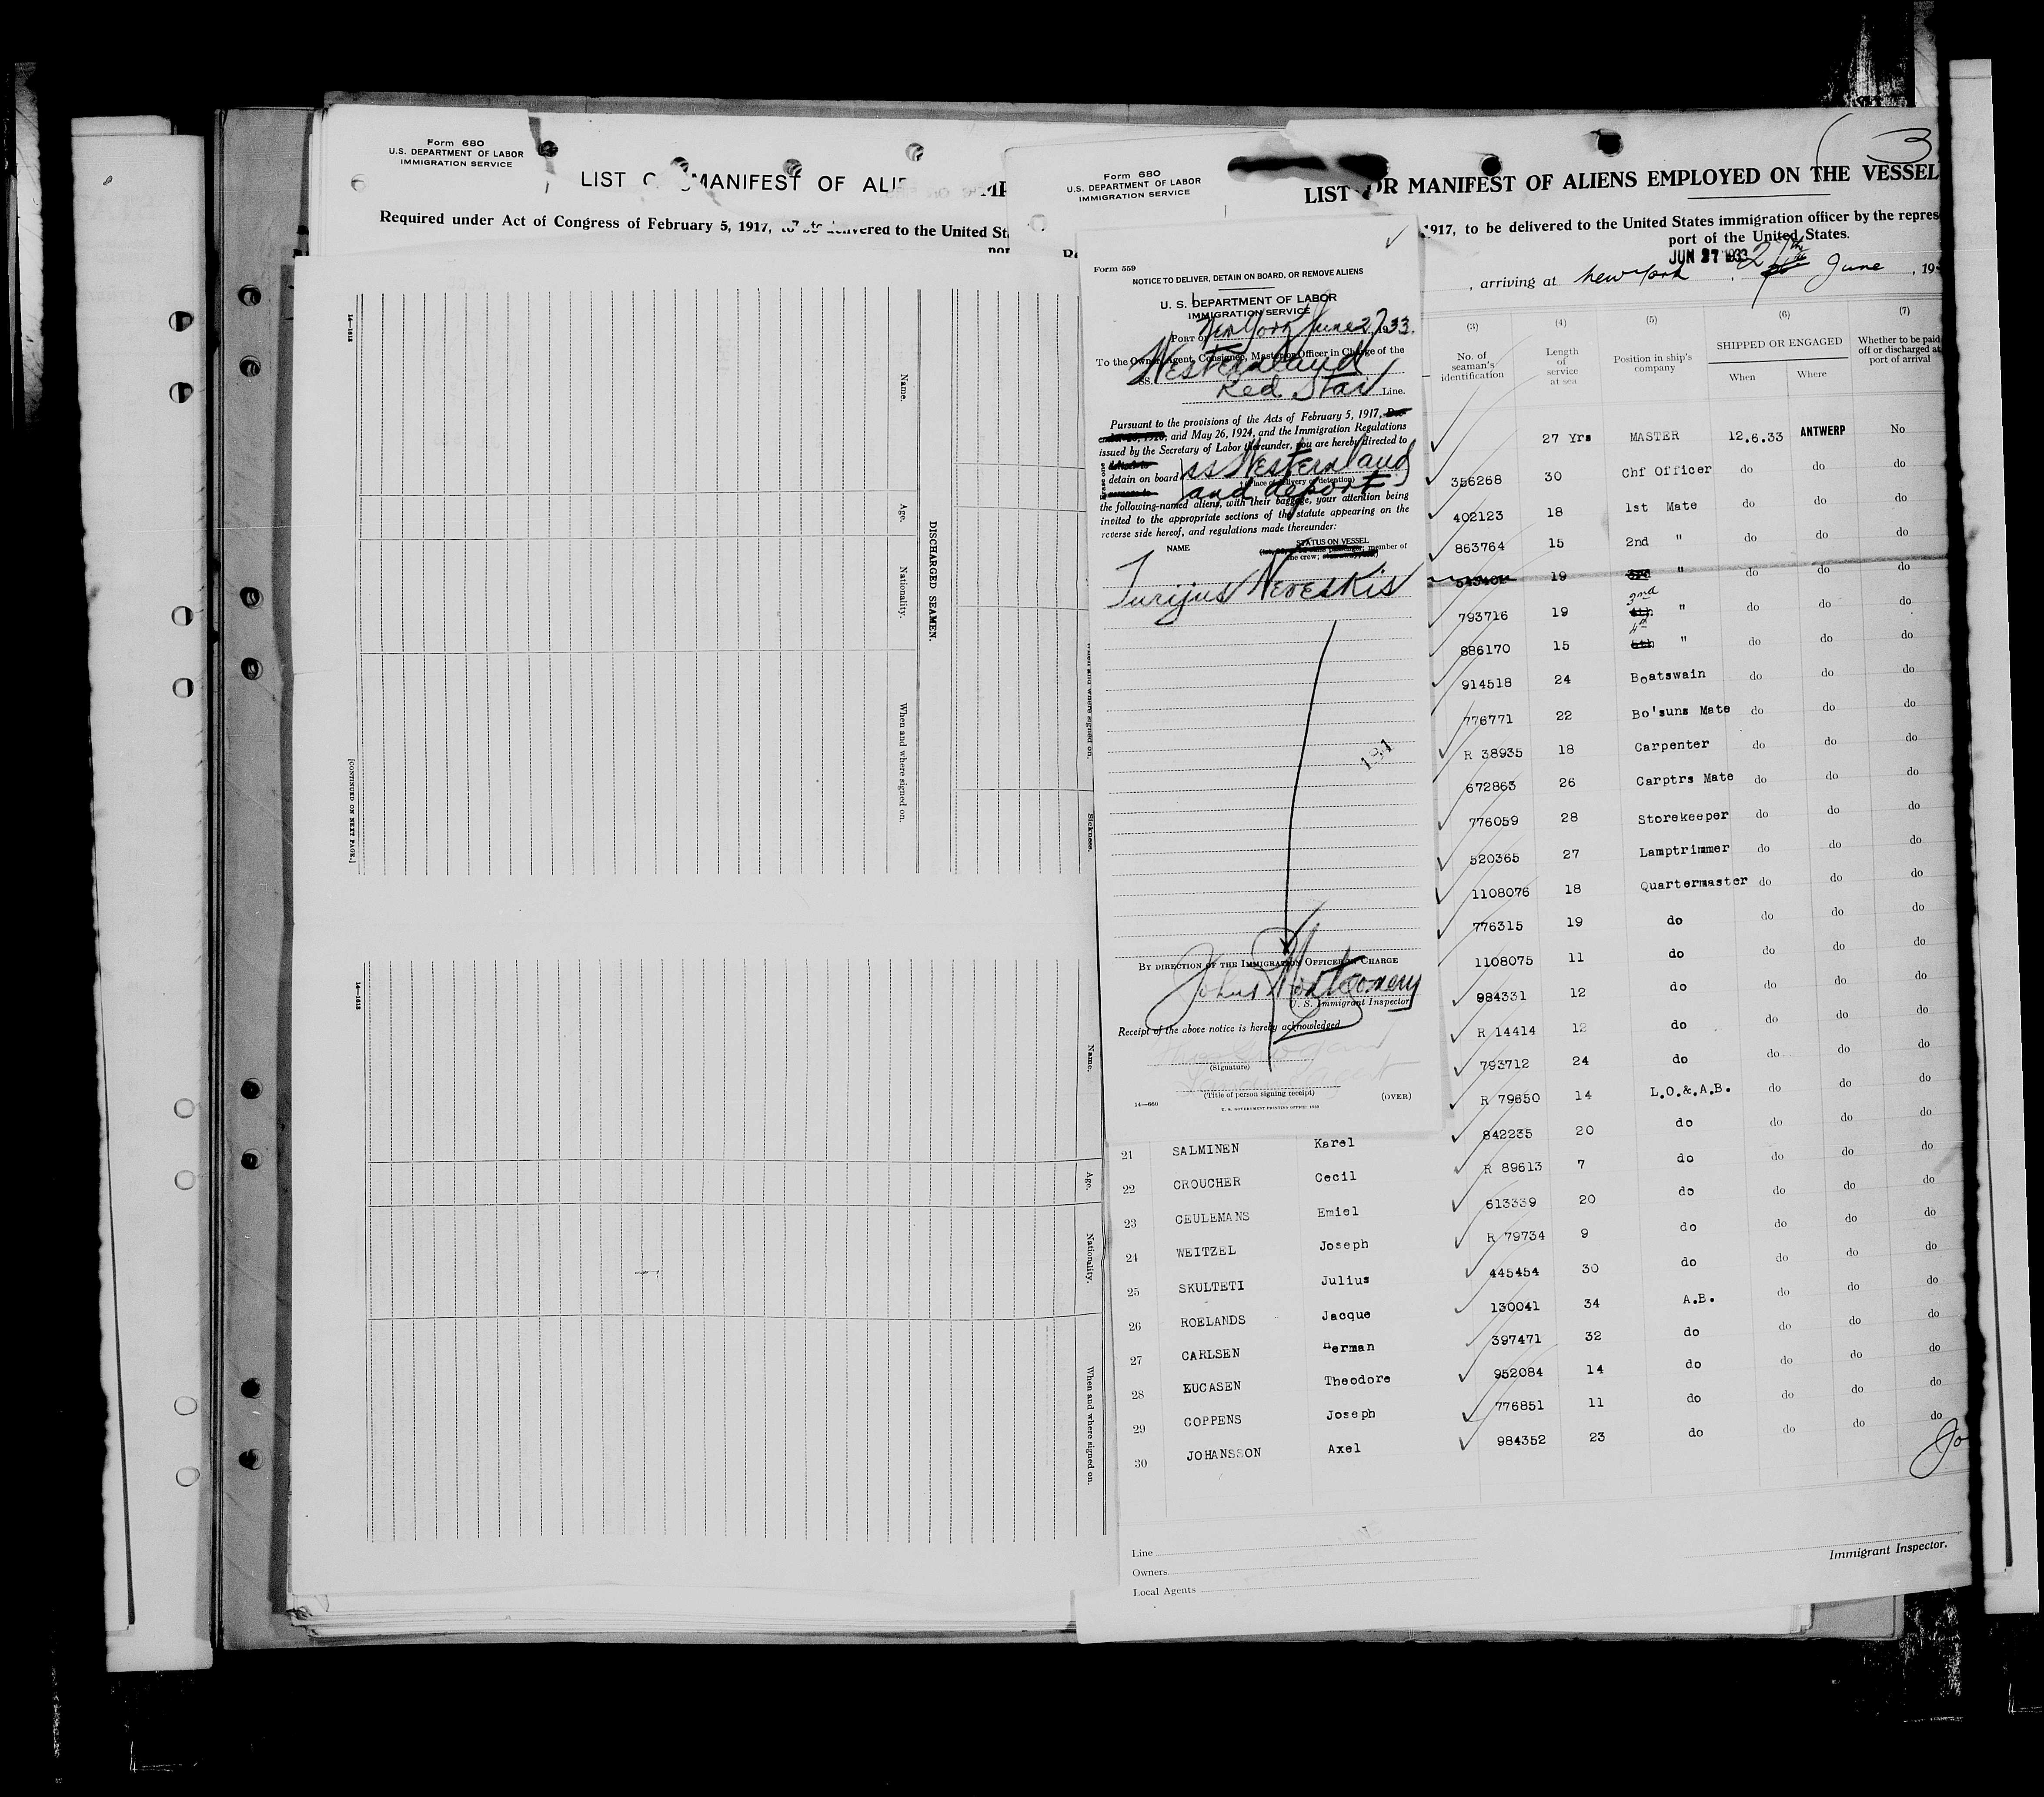 Form 680
U.S. DEPARTMENT OF LABOR
IMMIGRATION SERVICE
LIST MANIFEST OF
Required under Act of Congress of February 5, 1917, to be delivered to the United
14—1513
Name.
Age.
Nationality.
When and where signed on.
DISCHARGED SEAMEN.
[CONTINUED ON NEXT PAGE.]
When and where signed on.
Sickness.
14—1513
Name.
Age.
Nationality.
When and where signed on.
Form 680
U.S. DEPARTMENT OF LABOR
IMMIGRATION SERVICE
3
LIST OR MANIFEST OF ALIENS EMPLOYED ON THE VESSEL
1917, to be delivered to the United States immigration officer by the
port of the United States.
JUN 27 1933
, arriving at New York , 27th June , 19
Form 559
NOTICE TO DELIVER, DETAIN ON BOARD, OR REMOVE ALIENS
U. S. DEPARTMENT OF LABOR
IMMIGRATION SERVICE
Port of New York June 27, 1933.
To the Owner, Agent, Consignee, Master, or Officer in Charge of the
SS. Westernland
Red Star Line.
Pursuant to the provisions of the Acts of February 5, 1917,
and May 26, 1924, and the Immigration Regulations
issued by the Secretary of Labor thereunder, you are hereby directed to
Erase one
detain on board SS Westernland
(Place of delivery or detention)
and deport
the following-named aliens, with their baggage, your attention being
invited to the appropriate sections of the statute appearing on the
reverse side hereof, and regulations made thereunder:
NAME STATUS ON VESSEL
member of
the crew;
Jurijus Nereskis
181
By direction of the Immigration Officer in Charge
John Montgomery
U. S. Immigrant Inspector
Receipt of the above notice is hereby acknowledged
(Signature)
(Title of person signing receipt)
14—660 U. S. GOVERNMENT PRINTING OFFICE: (OVER)
(3) (4) (5) (6) (7)
No. of seaman's identification Length of service at sea Position in ship's company SHIPPED OR ENGAGED Whether to be paid off or discharged at port of arrival
When Where
27 Yrs MASTER 12.6.33 ANTWERP No
356268 30 Chf Officer do do do
402123 18 1st Mate do do do
863764 15 2nd " do do do
19 3rd " do do do
793716 19 2nd 4th " do do do
886170 15 4th " do do do
914518 24 Boatswain do do do
776771 22 Bo'suns Mate do do do
R 38935 18 Carpenter do do do
672863 26 Carptrs Mate do do do
776059 28 Storekeeper do do do
520365 27 Lamptrimmer do do do
1108076 18 Quartermaster do do do
776315 19 do do do do
1108075 11 do do do do
984331 12 do do do do
R 14414 12 do do do do
793712 24 do do do do
R 79650 14 L.O.&.A.B. do do do
21 SALMINEN Karel 842235 20 do do do do
22 CROUCHER Cecil R 89613 7 do do do do
23 CEULEMANS Emiel 613339 20 do do do do
24 WEITZEL Joseph R 79734 9 do do do do
25 SKULTETI Julius 445454 30 do do do do
26 ROELANDS Jacque 130041 34 A.B. do do do
27 CARLSEN Herman 397471 32 do do do do
28 EUCASEN Theodore 952084 14 do do do do
29 COPPENS Joseph 776851 11 do do do do
30 JOHANSSON Axel 984352 23 do do do do
Jo
Line
Owners
Local Agents
Immigrant Inspector.